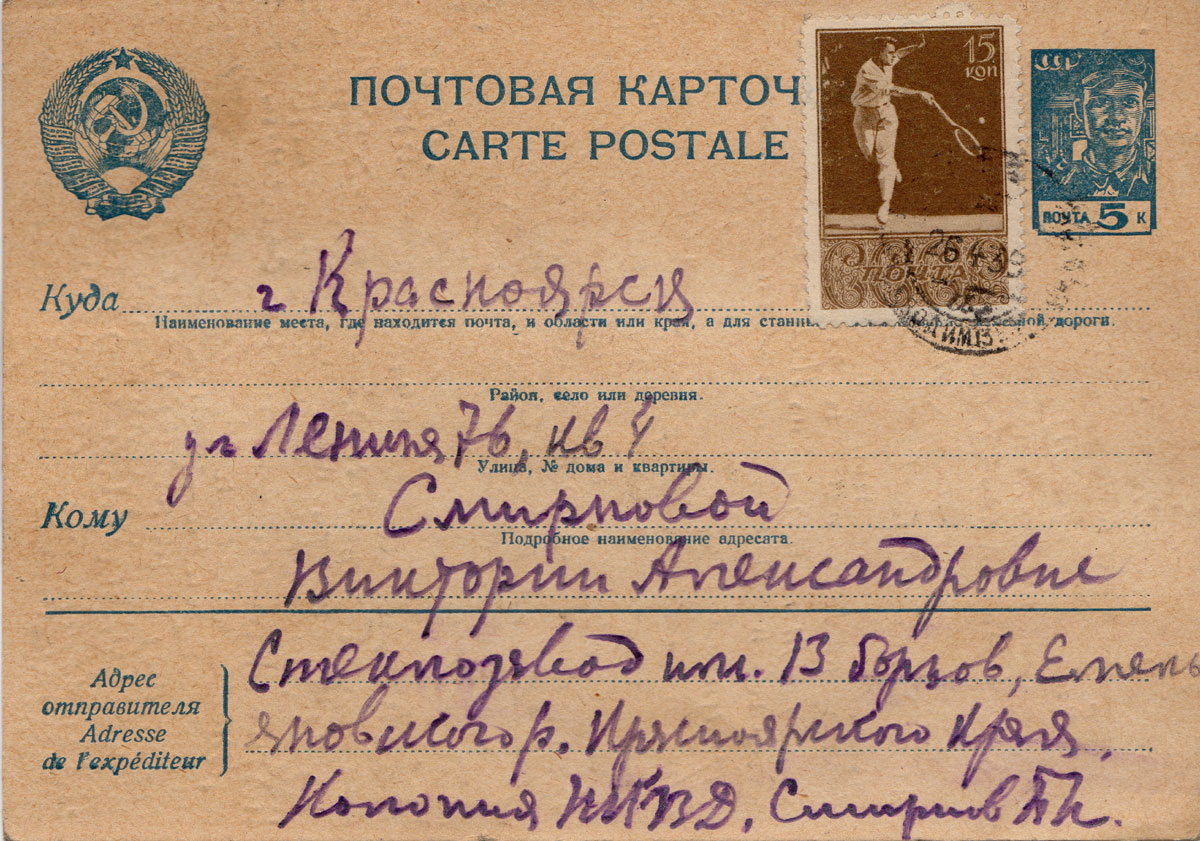 ПОЧТОВАЯ КАРТОЧ
CARTE POSTALE
15
КОП
ПОЧТА
СССР
ПОЧТА 5 К
26 4 3
ИМ 13
Куда г. Красноярск
Наименование места, где находится почта, и области или края, а для станций дороги.
Район, село или деревня.
ул Ленина 76, кв 4
Улица, № дома и квартиры.
Кому Смирновой
Подробное наименование адресата.
Виктории Александровне
Адрес
отправителя
Adresse
de l'expéditeur
Стеклозавод им. 13 борцов, Емель
яновского р. Красноярского края,
Колония НКВД. Смирнов